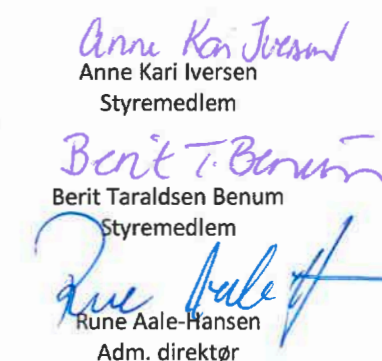 Anne Kari Iversen
Anne Kari Iversen
Styremedlem
Berit T. Benum
Berit Taraldsen Benum
Styremedlem
Rune Aale-H
Rune Aale-Hansen
Adm. direktør